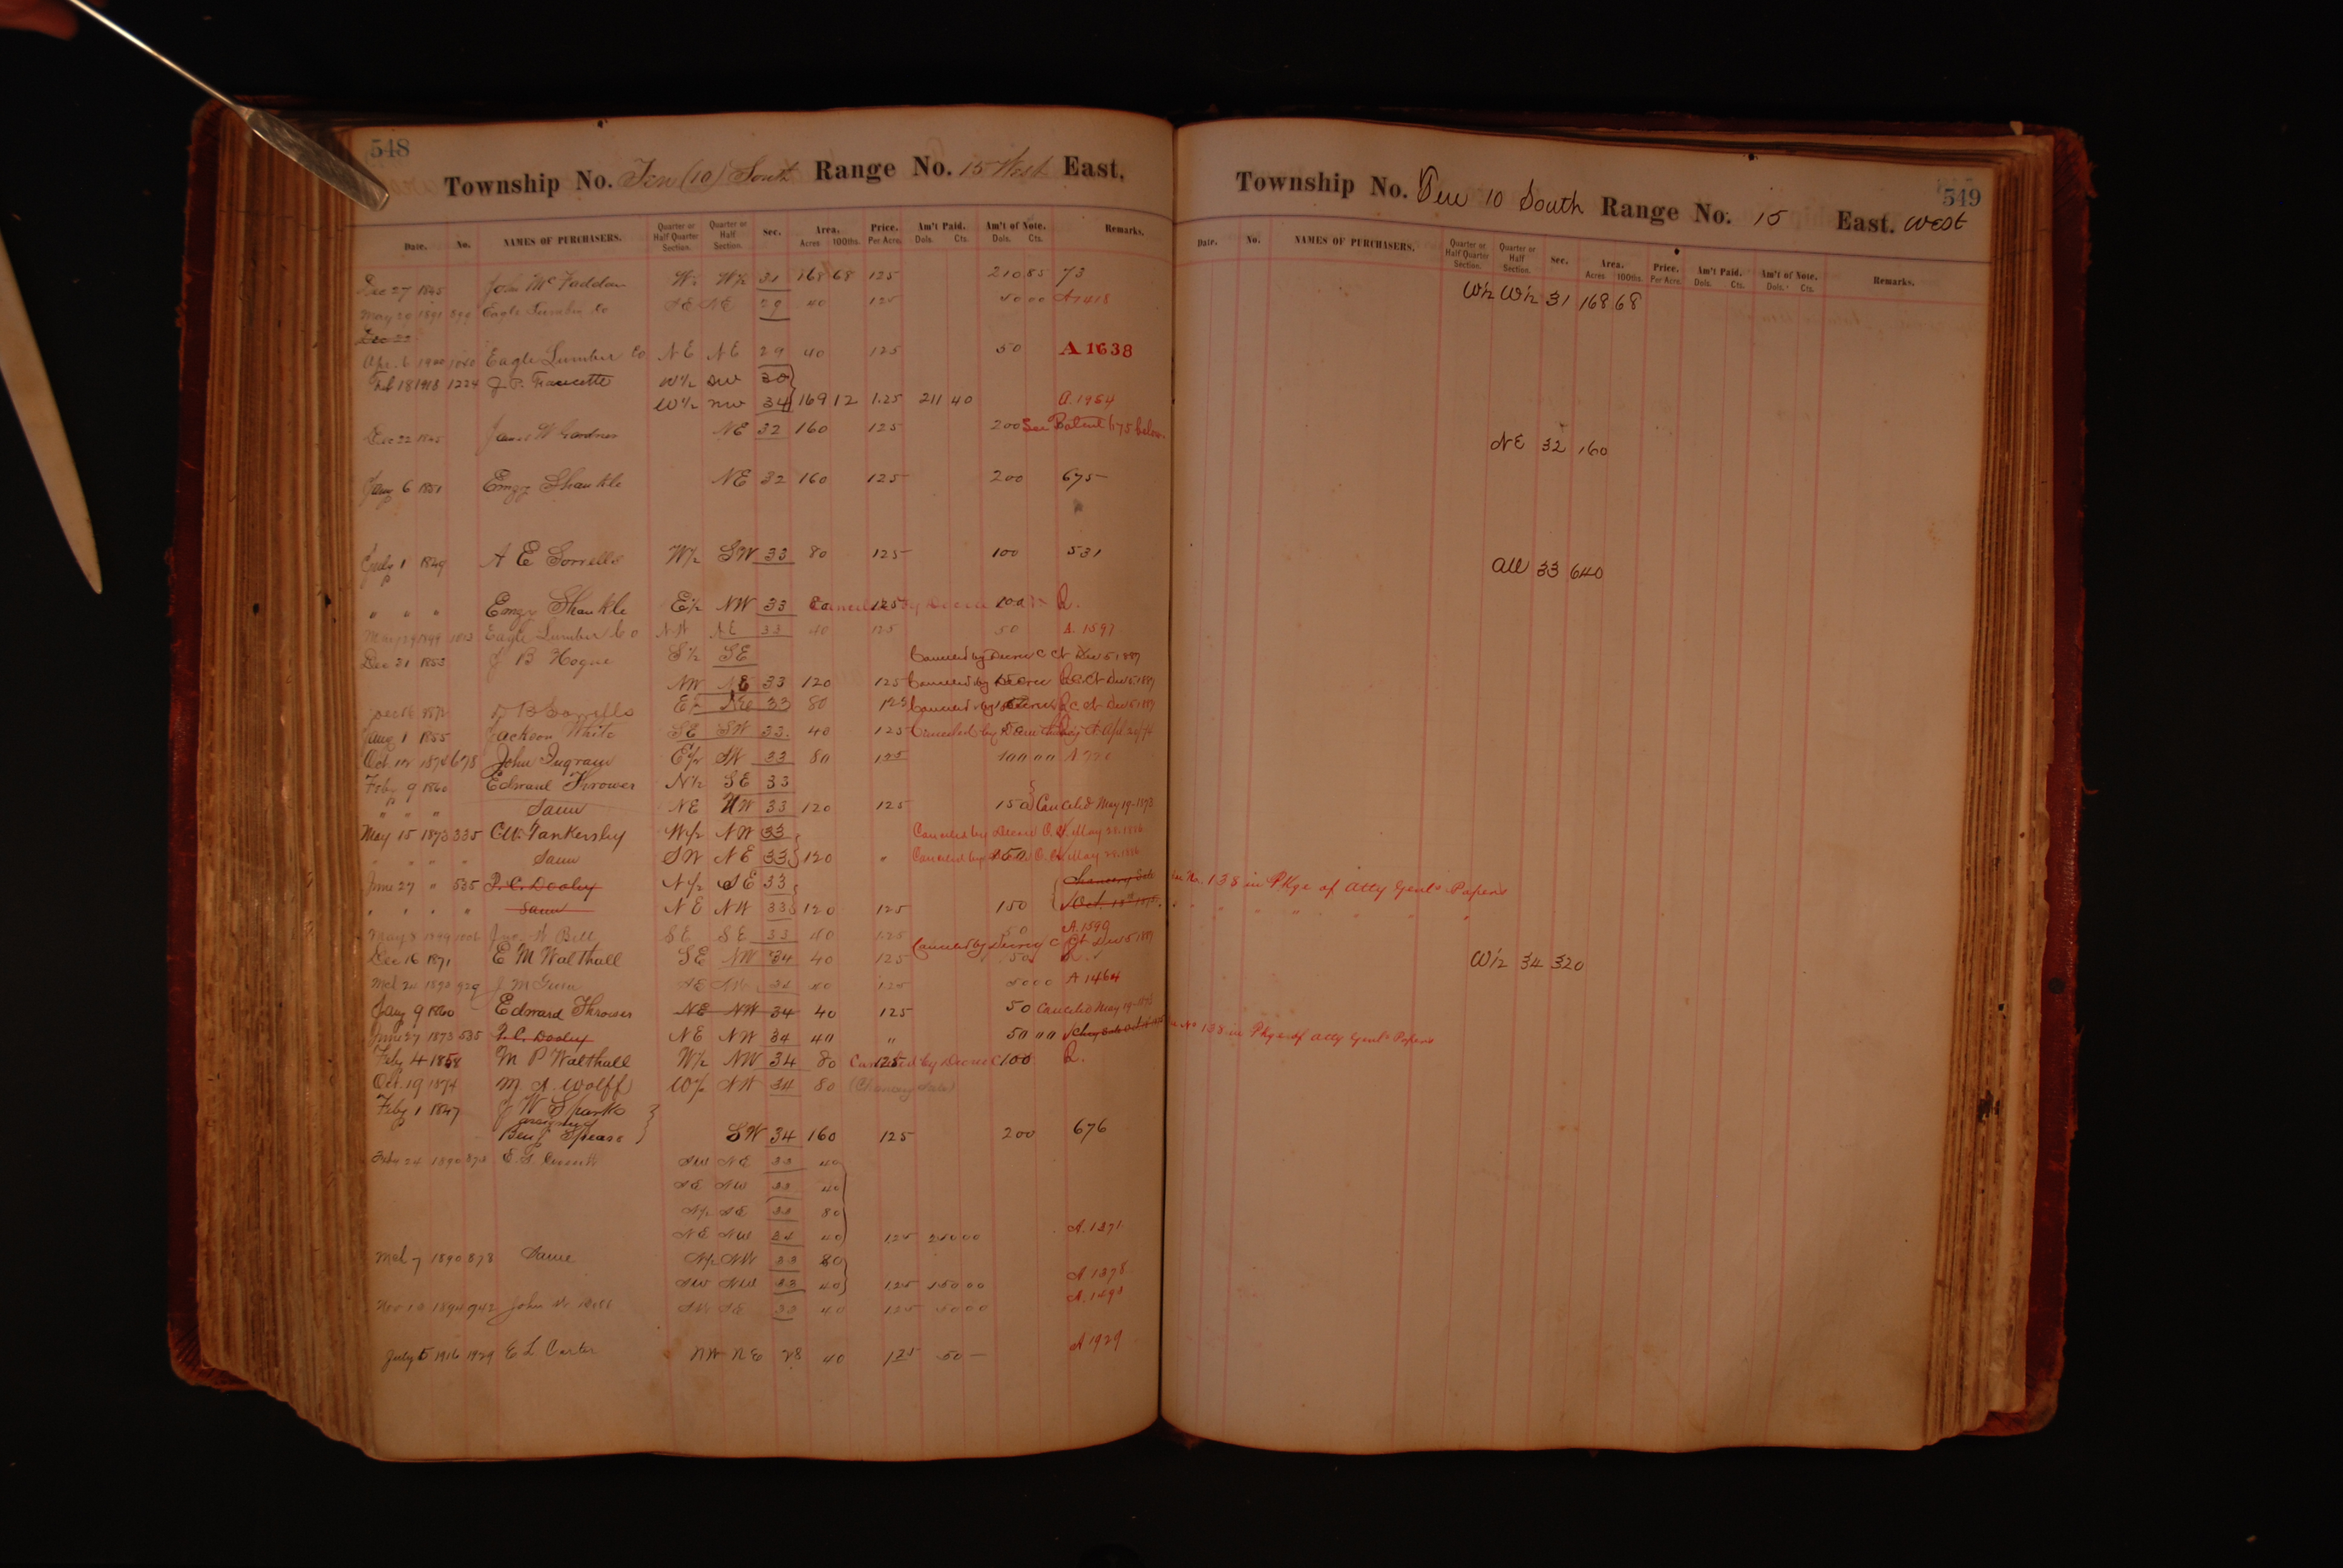 548
Township No. Ten (10) South Range No. 15 West East.
Date. No. NAMES OF PURCHASERS. Quarter or Half Quarter Section. Quarter or Half Section. Sec. Area. Acres 100ths. Price. Per Acre. Am't Paid. Dols. Cts. Am't of Note. Dols. Cts. Remarks.
Dec 27 1845 John McFaddan W½ W½ 31 168 68 125 210 85 73
May 29 1891 899 Eagle Lumber Co SE NE 29 40 125 50 00 A 1418
Dec 22
Apr. 6 1900 1040 Eagle Lumber Co NE NE 29 40 125 50 A 1638
Feb 18 1918 1224 J. P. Faucette W½ SW 30
W½ NW 34 169 12 1.25 211 40 A. 1964
Dec 22 1845 James W Gardner NE 32 160 125 200 See Patent 675 below
Jany 6 1851 Emzy Shankle NE 32 160 125 200 675
July 1 1849 A E Sorrells W½ SW 33 80 125 100 531
" " " Emzy Shankle E½ NW 33 80 125 Canceled by Decree 100 R.
Mar 29 1899 1013 Eagle Lumber Co NW NE 33 40 125 50 A. 1597
Dec 21 1853 J B Hogue S½ SE Canceled by Decree C Ct Dec 5, 1887
NW NE 33 120 125 Canceled by Decree 150 R C. Ct Dec 5, 1887
Dec 16 Sorrells E½ NE 33 80 125 Canceled by Decree R C Ct Dec 5, 1887
Jany 1 1855 Jackson White SE SW 33 40 125 Canceled by Decree 50
Oct. 1874 678 John Ingram E½ SW 33 80 125 100 00 A
Feby 9 1860 Edward Thrower N½ SE 33
" " " Same NE NW 33 120 125 150 Canceled May 19-1873
May 15 1873 335 C.W. Tankersly W½ NW 33 Canceled by Decree C. Ct. May 1886
" " " " Same SW NE 33 120 " Canceled by 150 C. Ct May 1886
June 27 " 535 T. C. Dooley N½ SE 33 Chancery Sale See No. 138 in Pkge of Atty Genls Papers
" " " " Same NE NW 33 120 125 150 Oct. " " " " " " "
May 3 1899 Jno. W Bell SE SE 33 40 1.25 50 A. 1599
Canceled by Decree C Ct Dec 5, 1887
Dec 16 1871 E M Walthall SE NW 34 40 125 50 R.
Mch 1892 929 J M Green SE NW 34 40 125 50 00 A 1464
Jany 9 1860 Edward Thrower NE NW 34 40 125 50 Canceled May 19-1873
June 27 1873 535 T. C. Dooley NE NW 34 40 " 50 00 See No 138 in Pkge of Atty Genls Papers
Feby 4 1858 M P Walthall W½ NW 34 80 125 Canceled by Decree 100 R.
Oct. 19 1874 M. A. Wolff W½ NW 34 80 (Chancery Sale)
Feby 1 1847 J W Sparks
assignee of
Benj Spears SW 34 160 125 200 676
Feby 24 1890 873 E. G. SW NE 33 40
SE NW 33 40
N½ SE 33 80
NE NW 34 40 125 250 00 A. 1371
Mch 7 1890 878 Same N½ NW 33 80
SW NW 33 40 125 150 00 A 1378
Nov 1894 942 John W Bell SW SE 33 40 125 50 00 A. 1498
July 5 1916 1929 E L Carter NW NE 28 40 125 50 — A 1929
549
Township No. Ten 10 South Range No. 15 East. West
Date. No. NAMES OF PURCHASERS. Quarter or Half Quarter Section. Quarter or Half Section. Sec. Area. Acres 100ths. Price. Per Acre. Am't Paid. Dols. Cts. Am't of Note. Dols. Cts. Remarks.
W½ W½ 31 168 68
NE 32 160
All 33 640
W½ 34 320